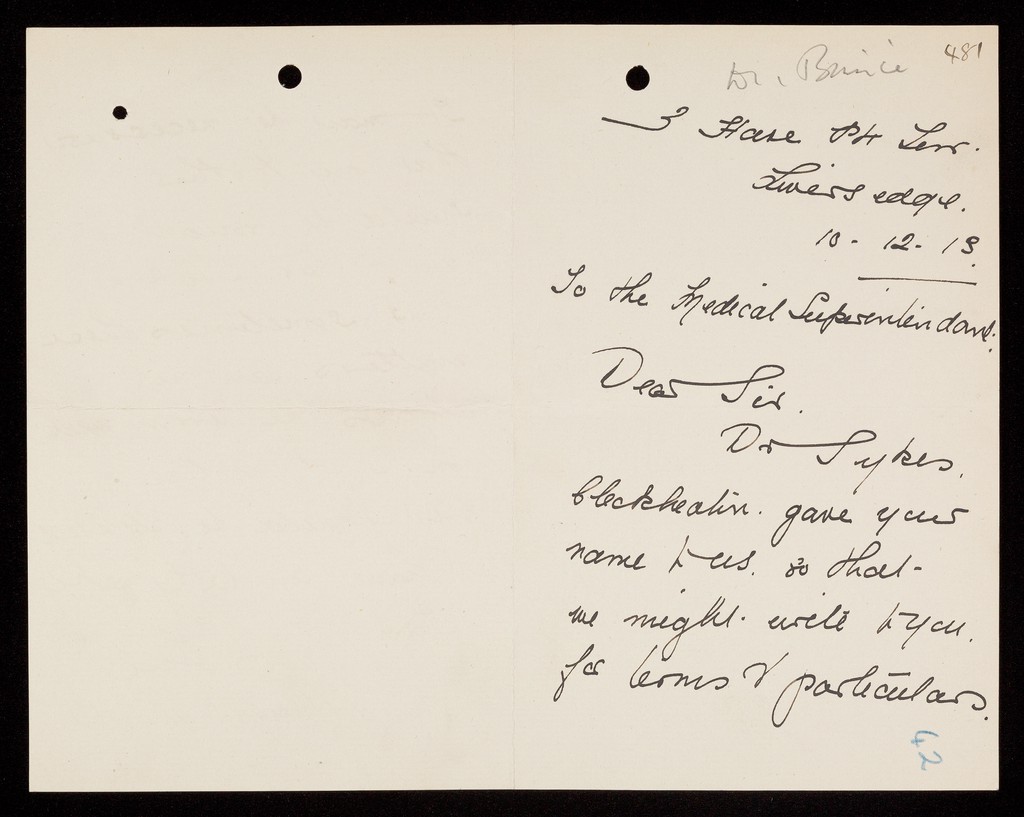 481
Dr. Brinie
3 Hare Pk Terr.
Liversedge.
10 - 12 - 13.
To the Medical Superintendant.
Dear Sir.
Dr Sykes.
Cleckheaton. gave your
name to us. so that
we might. write to you.
for terms & particulars.
42